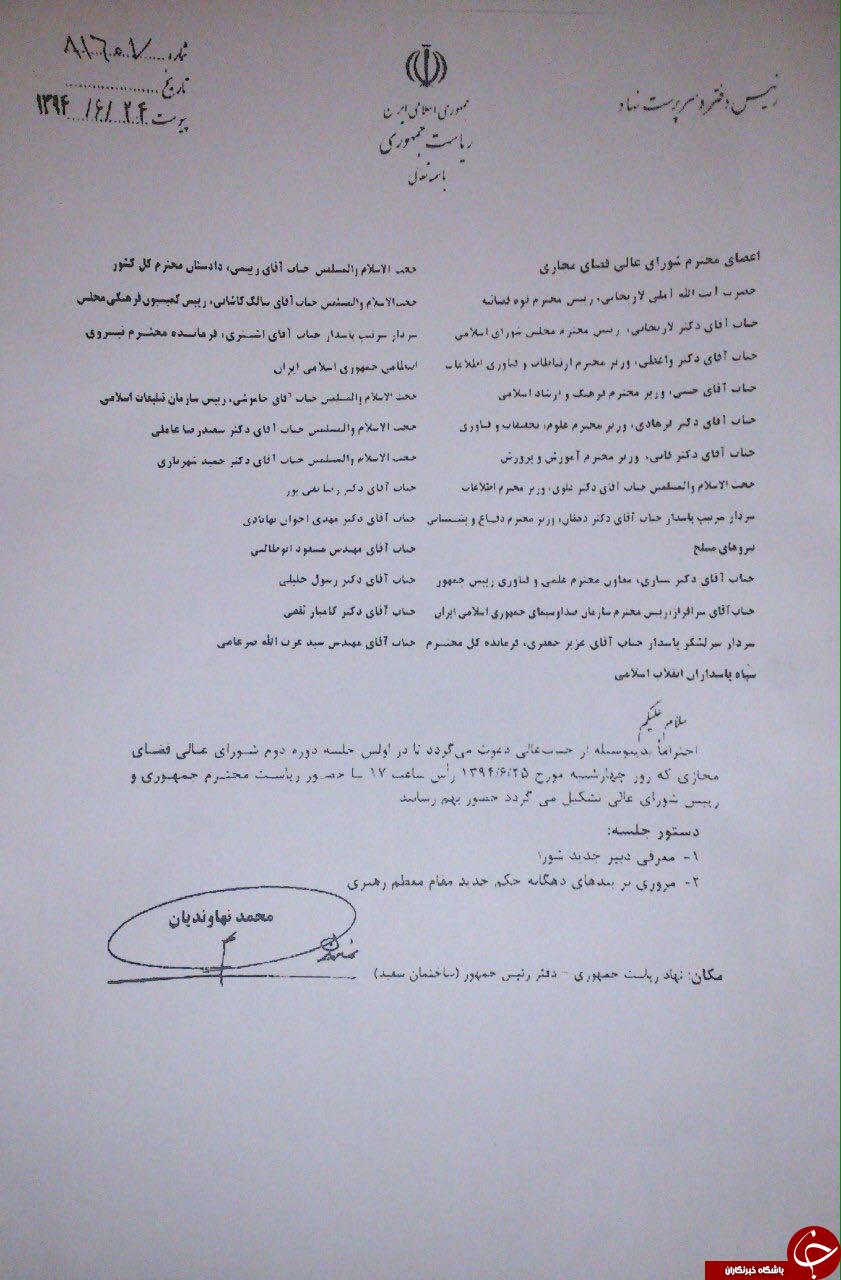 شماره ۸۱۶۰۷
تاریخ
پیوست ۱۳۹۴/۶/۲۴
جمهوری اسلامی ایران
ریاست جمهوری
باسمه تعالی
رئیس دفتر و سرپرست نهاد
اعضای محترم شورای عالی فضای مجازی
حضرت آیت الله آملی لاریجانی، رییس محترم قوه قضائیه
جناب آقای دکتر لاریجانی، رییس محترم مجلس شورای اسلامی
جناب آقای دکتر واعظی، وزیر محترم ارتباطات و فناوری اطلاعات
جناب آقای جنتی، وزیر محترم فرهنگ و ارشاد اسلامی
جناب آقای دکتر فرهادی، وزیر محترم علوم، تحقیقات و فناوری
جناب آقای دکتر فانی، وزیر محترم آموزش و پرورش
حجت الاسلام والمسلمین جناب آقای دکتر علوی، وزیر محترم اطلاعات
سردار سرتیپ پاسدار جناب آقای دکتر دهقان، وزیر محترم دفاع و پشتیبانی
نیروهای مسلح
جناب آقای دکتر ستاری، معاون محترم علمی و فناوری رییس جمهور
جناب آقای سرافراز، رییس محترم سازمان صداوسیمای جمهوری اسلامی ایران
سردار سرلشگر پاسدار جناب آقای عزیز جعفری، فرمانده کل محترم
سپاه پاسداران انقلاب اسلامی
حجت الاسلام والمسلمین جناب آقای رییسی، دادستان محترم کل کشور
حجت الاسلام والمسلمین جناب آقای سالک کاشانی، رییس کمیسیون فرهنگی مجلس
سردار سرتیپ پاسدار جناب آقای اشتری، فرمانده محترم نیروی
انتظامی جمهوری اسلامی ایران
حجت الاسلام والمسلمین جناب آقای خاموشی، رییس سازمان تبلیغات اسلامی
حجت الاسلام والمسلمین جناب آقای دکتر سعیدرضا عاملی
حجت الاسلام والمسلمین جناب آقای دکتر حمید شهریاری
جناب آقای دکتر رضا تقی پور
جناب آقای دکتر مهدی اخوان بهابادی
جناب آقای مهندس مسعود ابوطالبی
جناب آقای دکتر رسول جلیلی
جناب آقای دکتر کامیار ثقفی
جناب آقای مهندس سید عزت الله ضرغامی
سلام علیکم
احتراماً بدینوسیله از جنابعالی دعوت می‌گردد تا در اولین جلسه دوره دوم شورای عالی فضای
مجازی که روز چهارشنبه مورخ ۱۳۹۴/۶/۲۵ رأس ساعت ۱۷ با حضور ریاست محترم جمهوری و
رییس شورای عالی تشکیل می گردد حضور بهم رسانید
دستور جلسه:
۱- معرفی دبیر جدید شورا
۲- مروری بر بندهای دهگانه حکم جدید مقام معظم رهبری
محمد نهاوندیان
مکان: نهاد ریاست جمهوری - دفتر رئیس جمهور (ساختمان سفید)
باشگاه خبرنگاران